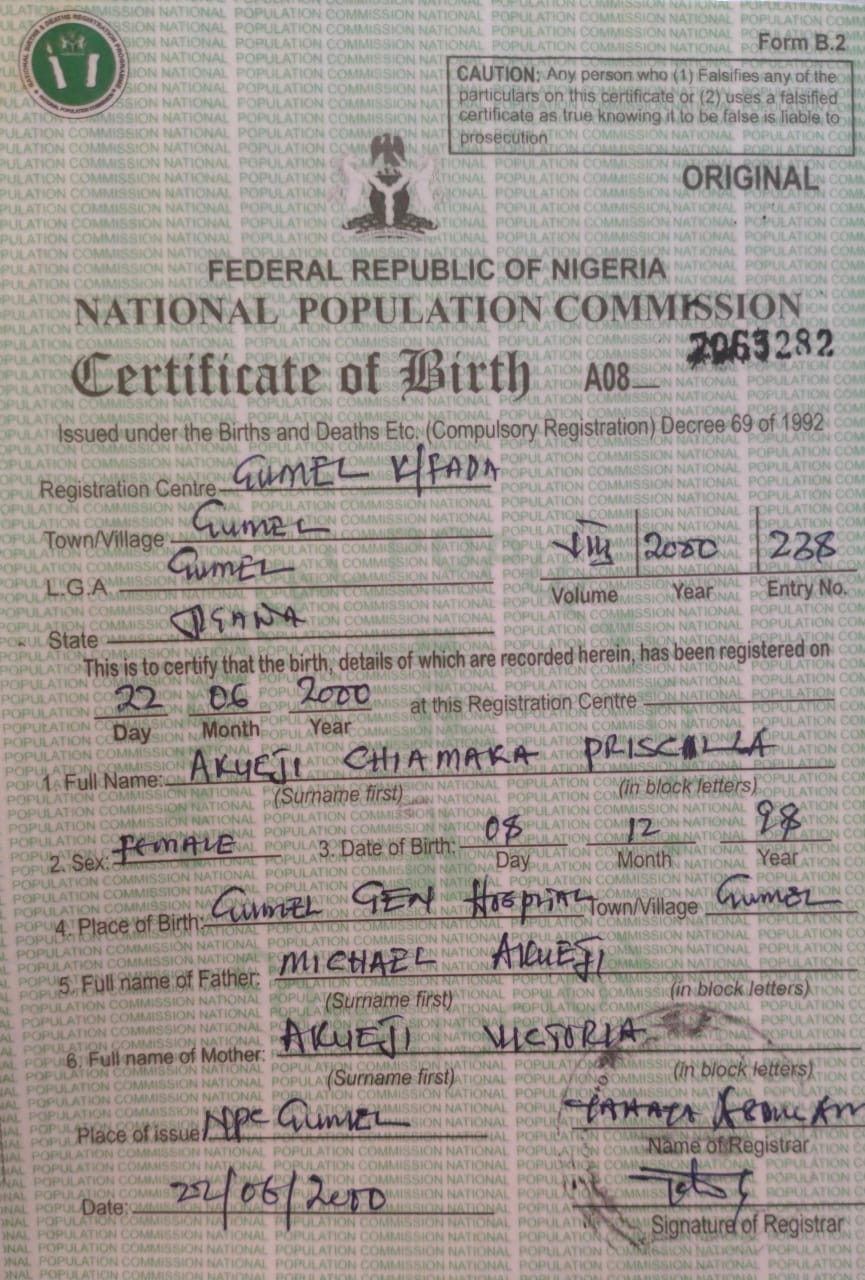 Form B.2
CAUTION: Any person who (1) Falsifies any of the
particulars on this certificate or (2) uses a falsified
certificate as true knowing it to be false is liable to
prosecution
ORIGINAL
FEDERAL REPUBLIC OF NIGERIA
NATIONAL POPULATION COMMISSION
Certificate of Birth A08 2063282
Issued under the Births and Deaths Etc. (Compulsory Registration) Decree 69 of 1992
Registration Centre GUMEL K/FADA
Town/Village GUMEL
L.G.A GUMEL
State JIGAWA
VIII 2000 238
Volume Year Entry No.
This is to certify that the birth, details of which are recorded herein, has been registered on
22 06 2000 at this Registration Centre
Day Month Year
1. Full Name: AKUEJI CHIAMAKA PRISCILLA
(Surname first) (in block letters)
2. Sex: FEMALE 3. Date of Birth: 08 12 98
Day Month Year
4. Place of Birth: GUMEL GEN HOSPITAL Town/Village GUMEL
5. Full name of Father: MICHAEL AKUEJI
(Surname first) (in block letters)
6. Full name of Mother: AKUEJI VICTORIA
(Surname first) (in block letters)
Place of issue NPC GUMEL
Name of Registrar
Date: 22/06/2000
Signature of Registrar